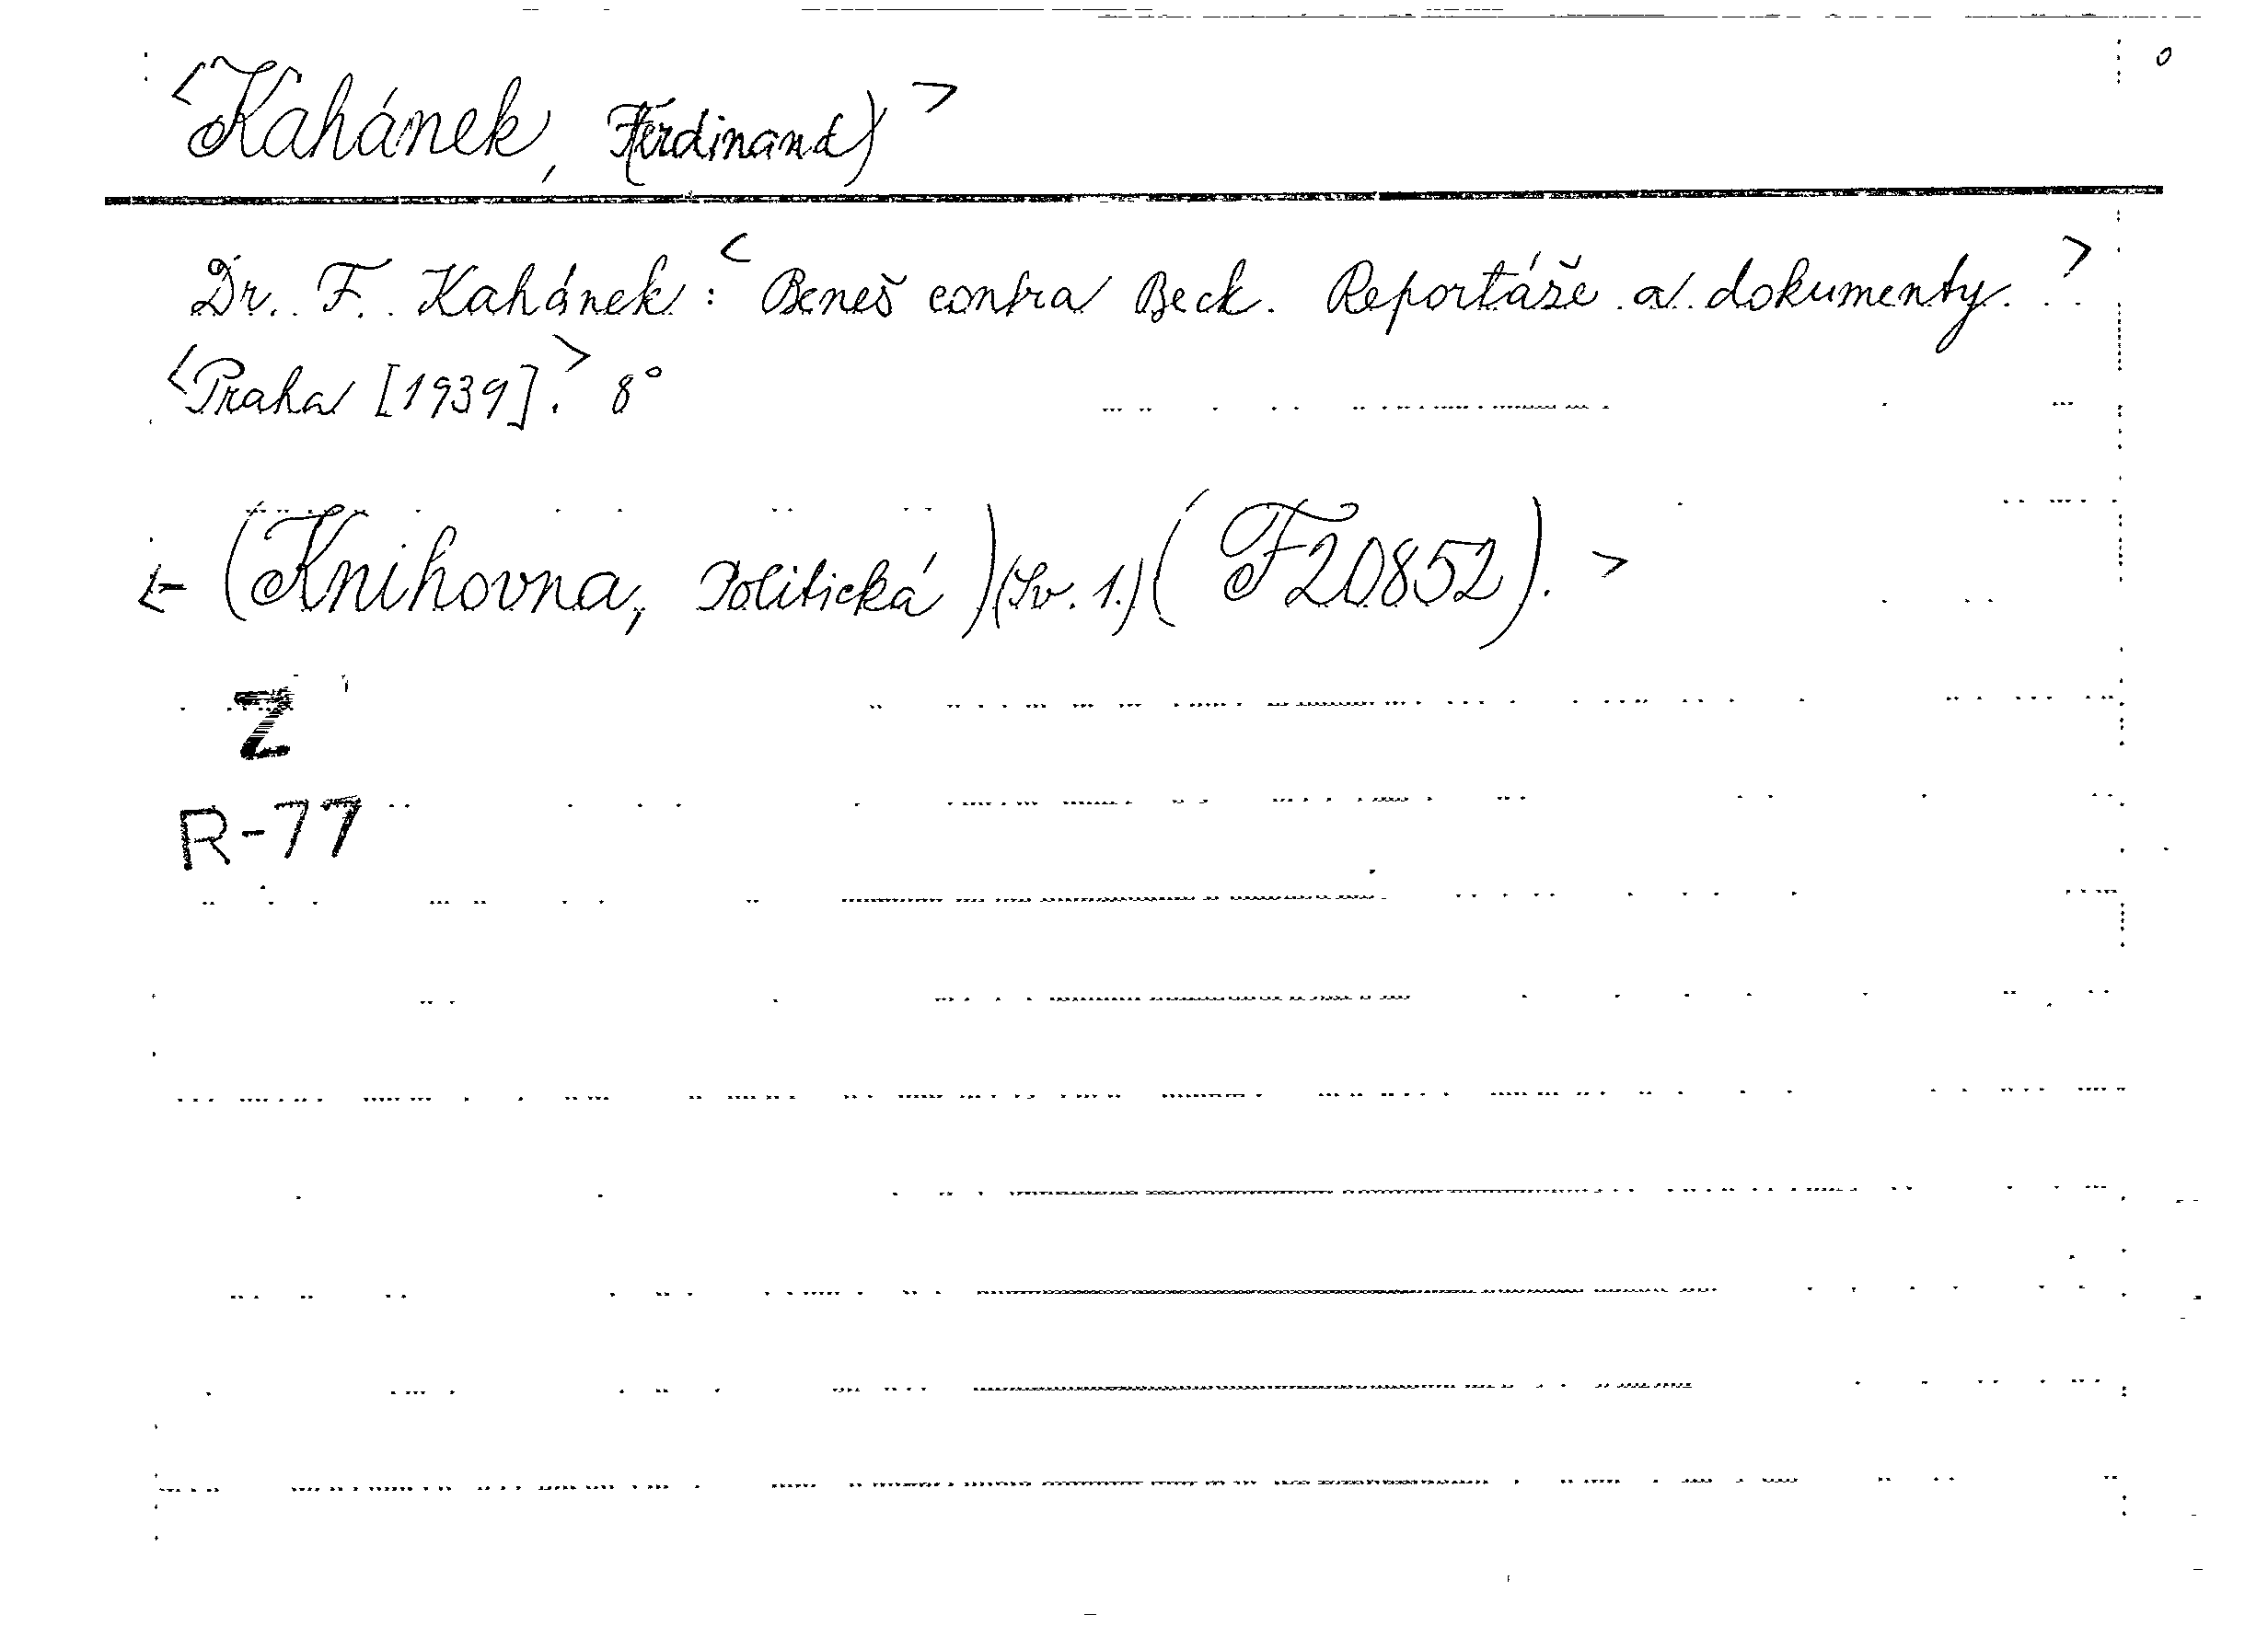 <Kahánek, Ferdinand)>
Dr. F. Kahánek: <Beneš contra Beck. Reportáže a dokumenty.>
<Praha [1939].> 8°
<- (Knihovna, Politická)(Sv. 1.)(F20852).>
Z
R-77